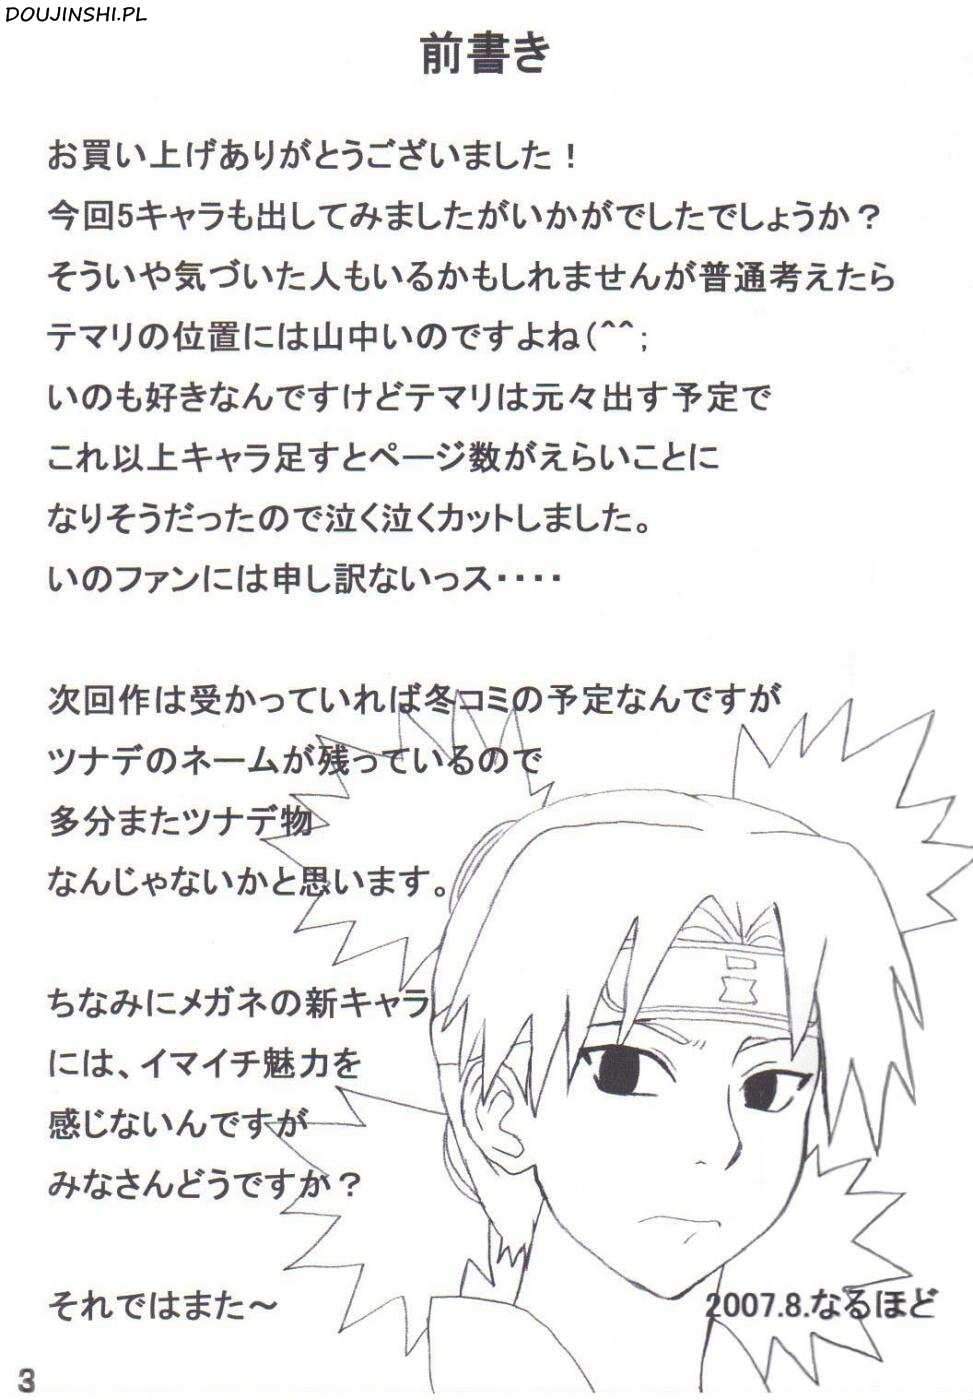 DOUJINSHI.PL
前書き
お買い上げありがとうございました！
今回5キャラも出してみましたがいかがでしたでしょうか？
そういや気づいた人もいるかもしれませんが普通考えたら
テマリの位置には山中いのですよね(^^;
いのも好きなんですけどテマリは元々出す予定で
これ以上キャラ足すとページ数がえらいことに
なりそうだったので泣く泣くカットしました。
いのファンには申し訳ないっス・・・・
次回作は受かっていれば冬コミの予定なんですが
ツナデのネームが残っているので
多分またツナデ物
なんじゃないかと思います。
ちなみにメガネの新キャラ
には、イマイチ魅力を
感じないんですが
みなさんどうですか？
それではまた～
2007.8.なるほど
3